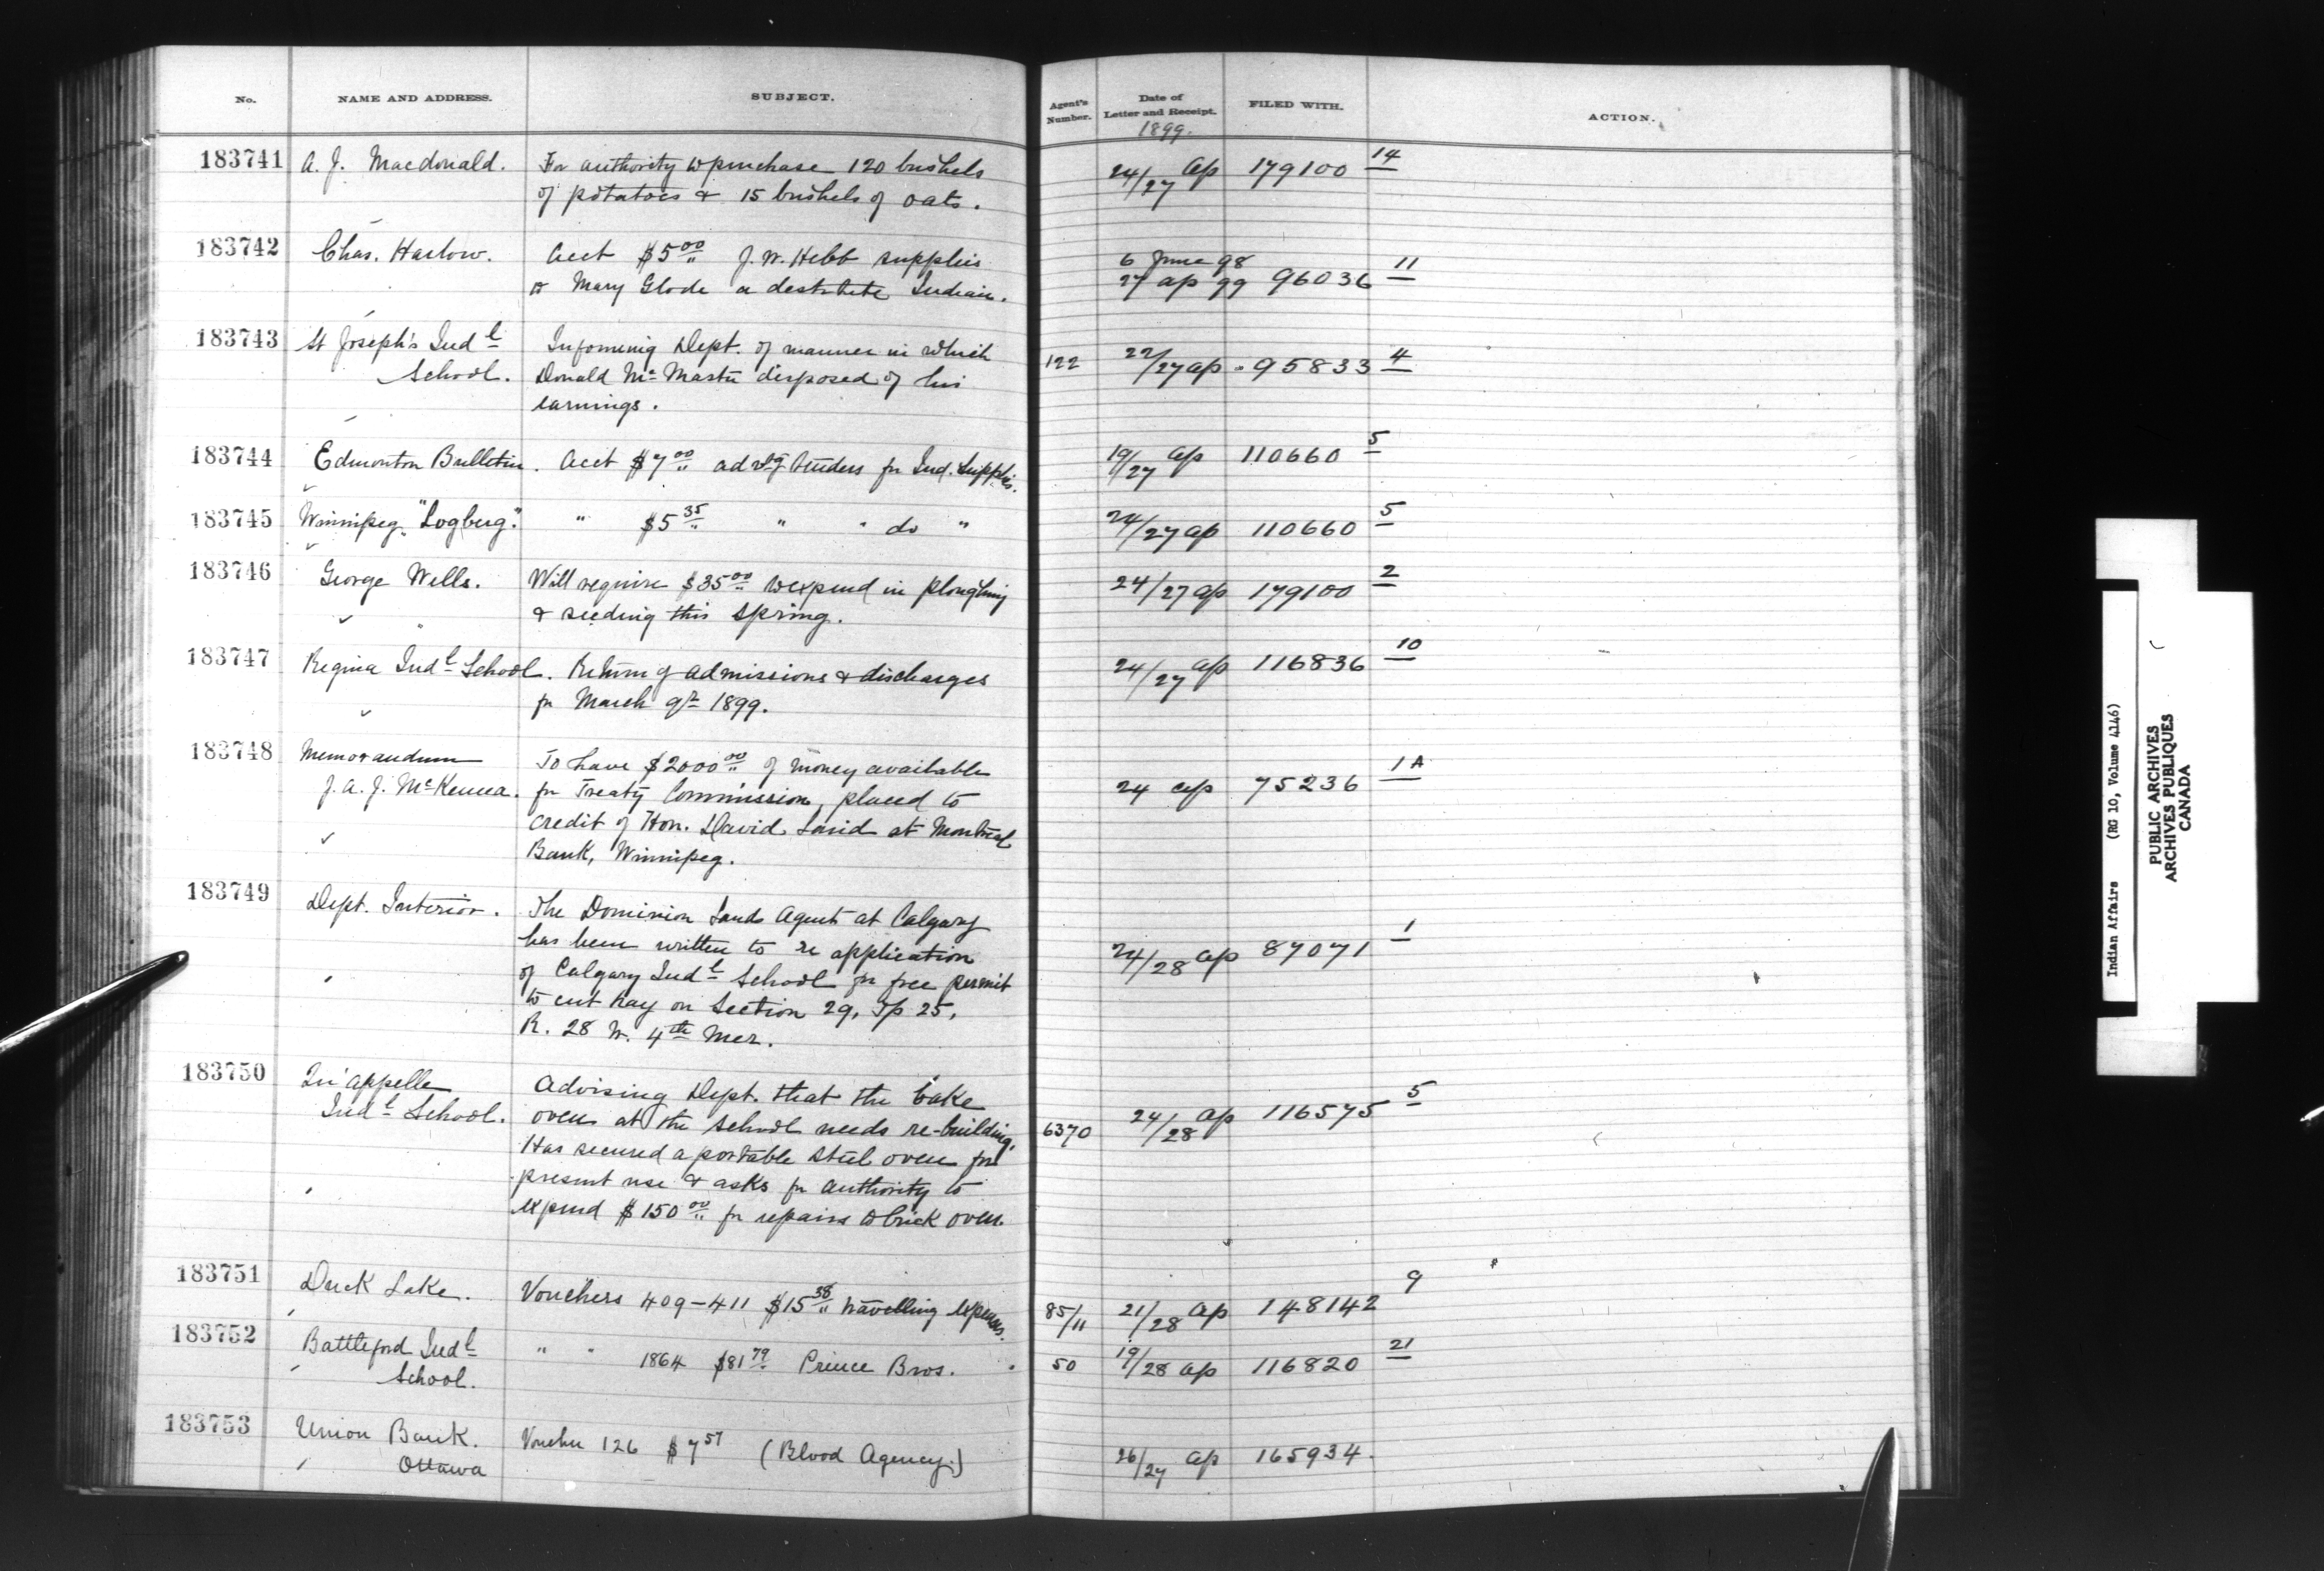 No. NAME AND ADDRESS. SUBJECT. Agent's Number. Date of Letter and Receipt. FILED WITH. ACTION.
1899.
183741 A. J. Macdonald. For authority to purchase 120 bushels 24/27 ap 179100 14
of potatoes & 15 bushels of oats.
183742 Chas. Harlow. Acct $5 00 J. W. Hebb supplies 6 June 98
to Mary Glode a destitute Indian. 27 ap 99 96036 11
183743 St Joseph's Indl Informing Dept. of manner in which
School. Donald McMaster disposed of his 122 22/27 ap 95833 4
earnings.
183744 Edmonton Bulletin. Acct $7 00 advtg tenders for Ind. Supplies. 19/27 ap 110660 5
183745 Winnipeg "Logberg". " $5 35 " " do " 24/27 ap 110660 5
183746 George Wells. Will require $35 00 to expend in ploughing 24/27 ap 179100 2
& seeding this spring.
183747 Regina Indl School. Return of admissions & discharges 24/27 ap 116836 10
for March qr 1899.
183748 Memorandum To have $2000 00 of money available
J. A. J. McKenna. for Treaty Commission, placed to 24 ap 75236 1A
credit of Hon. David Laird at Montreal
Bank, Winnipeg.
183749 Dept. Interior. The Dominion Lands Agent at Calgary
has been written to re application 24/28 ap 87071 1
of Calgary Indl School for free permit
to cut hay on Section 29, Tp 25,
R. 28 W. 4th Mer.
183750 Qu'appelle Advising Dept. that the bake
Indl School. oven at the school needs re-building. 6370 24/28 ap 116575 5
Has secured a portable steel oven for
present use & asks for authority to
expend $150 00 for repairs to brick oven.
183751 Duck Lake. Vouchers 409-411 $15 38 travelling expenses. 85/11 21/28 ap 148142 9
183752 Battleford Indl " " 1864 $81 79 Prince Bros. 50 19/28 ap 116820 21
School.
183753 Union Bank. Voucher 126 $7 57 (Blood Agency.) 26/27 ap 165934.
Ottawa
Indian Affairs (RG 10, Volume 4146)
PUBLIC ARCHIVES
ARCHIVES PUBLIQUES
CANADA